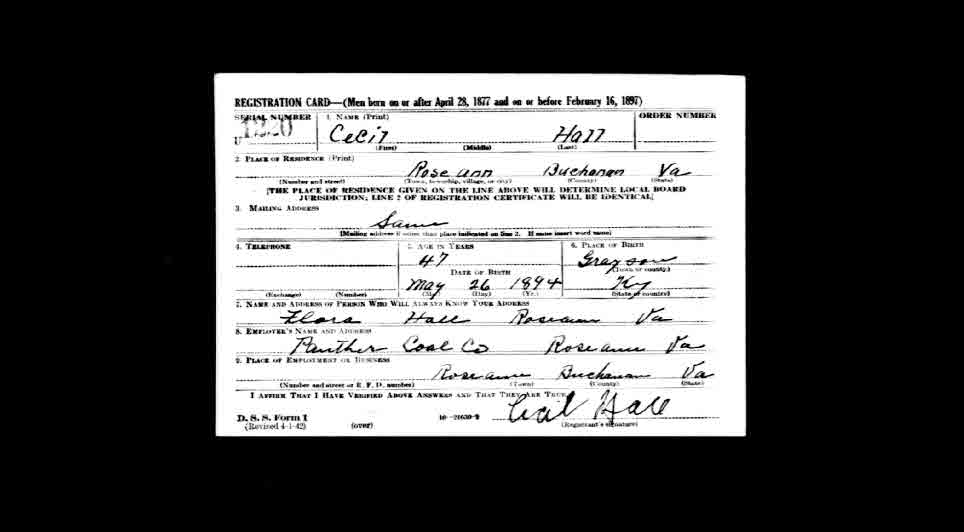 REGISTRATION CARD—(Men born on or after April 28, 1877 and on or before February 16, 1897)
SERIAL NUMBER 1. NAME (Print) ORDER NUMBER
U 1220 Cecil Hall
(First) (Middle) (Last)
2. PLACE OF RESIDENCE (Print)
Rose ann Buchanan Va
(Number and street) (Town, township, village, or city) (County) (State)
[THE PLACE OF RESIDENCE GIVEN ON THE LINE ABOVE WILL DETERMINE LOCAL BOARD
JURISDICTION; LINE 2 OF REGISTRATION CERTIFICATE WILL BE IDENTICAL]
3. MAILING ADDRESS
Same
[Mailing address if other than place indicated on line 2. If same insert word same]
4. TELEPHONE 5. AGE IN YEARS 6. PLACE OF BIRTH
47 Grayson
DATE OF BIRTH (Town or county)
May 26 1894 Ky
(Exchange) (Number) (Mo.) (Day) (Yr.) (State or country)
7. NAME AND ADDRESS OF PERSON WHO WILL ALWAYS KNOW YOUR ADDRESS
Flora Hall Roseann Va
8. EMPLOYER'S NAME AND ADDRESS
Panther Coal Co Roseann Va
9. PLACE OF EMPLOYMENT OR BUSINESS
Roseann Buchanan Va
(Number and street or R. F. D. number) (Town) (County) (State)
I AFFIRM THAT I HAVE VERIFIED ABOVE ANSWERS AND THAT THEY ARE TRUE.
Cecil Hall
D. S. S. Form 1 16—21630-2
(Revised 4-1-42) (over) (Registrant's signature)